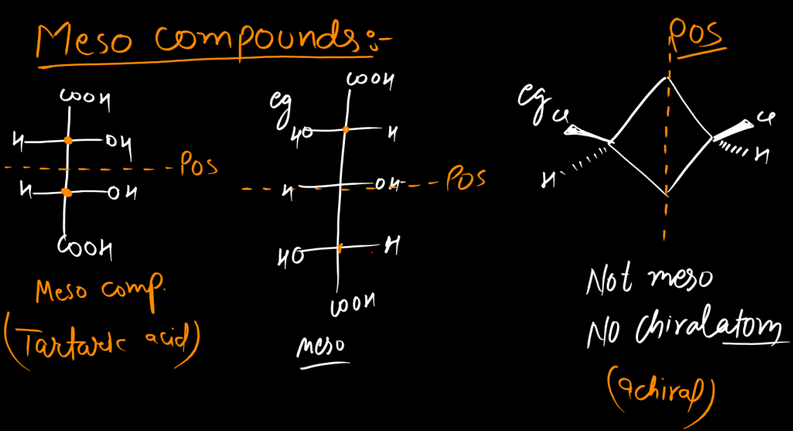 Meso compounds:-
COOH
H OH
POS
H OH
COOH
Meso comp.
(Tartaric acid)
eg
COOH
HO H
H OH
POS
HO H
COOH
meso
POS
eg
Cl Cl
H H
Not meso
No chiral atom
(achiral)